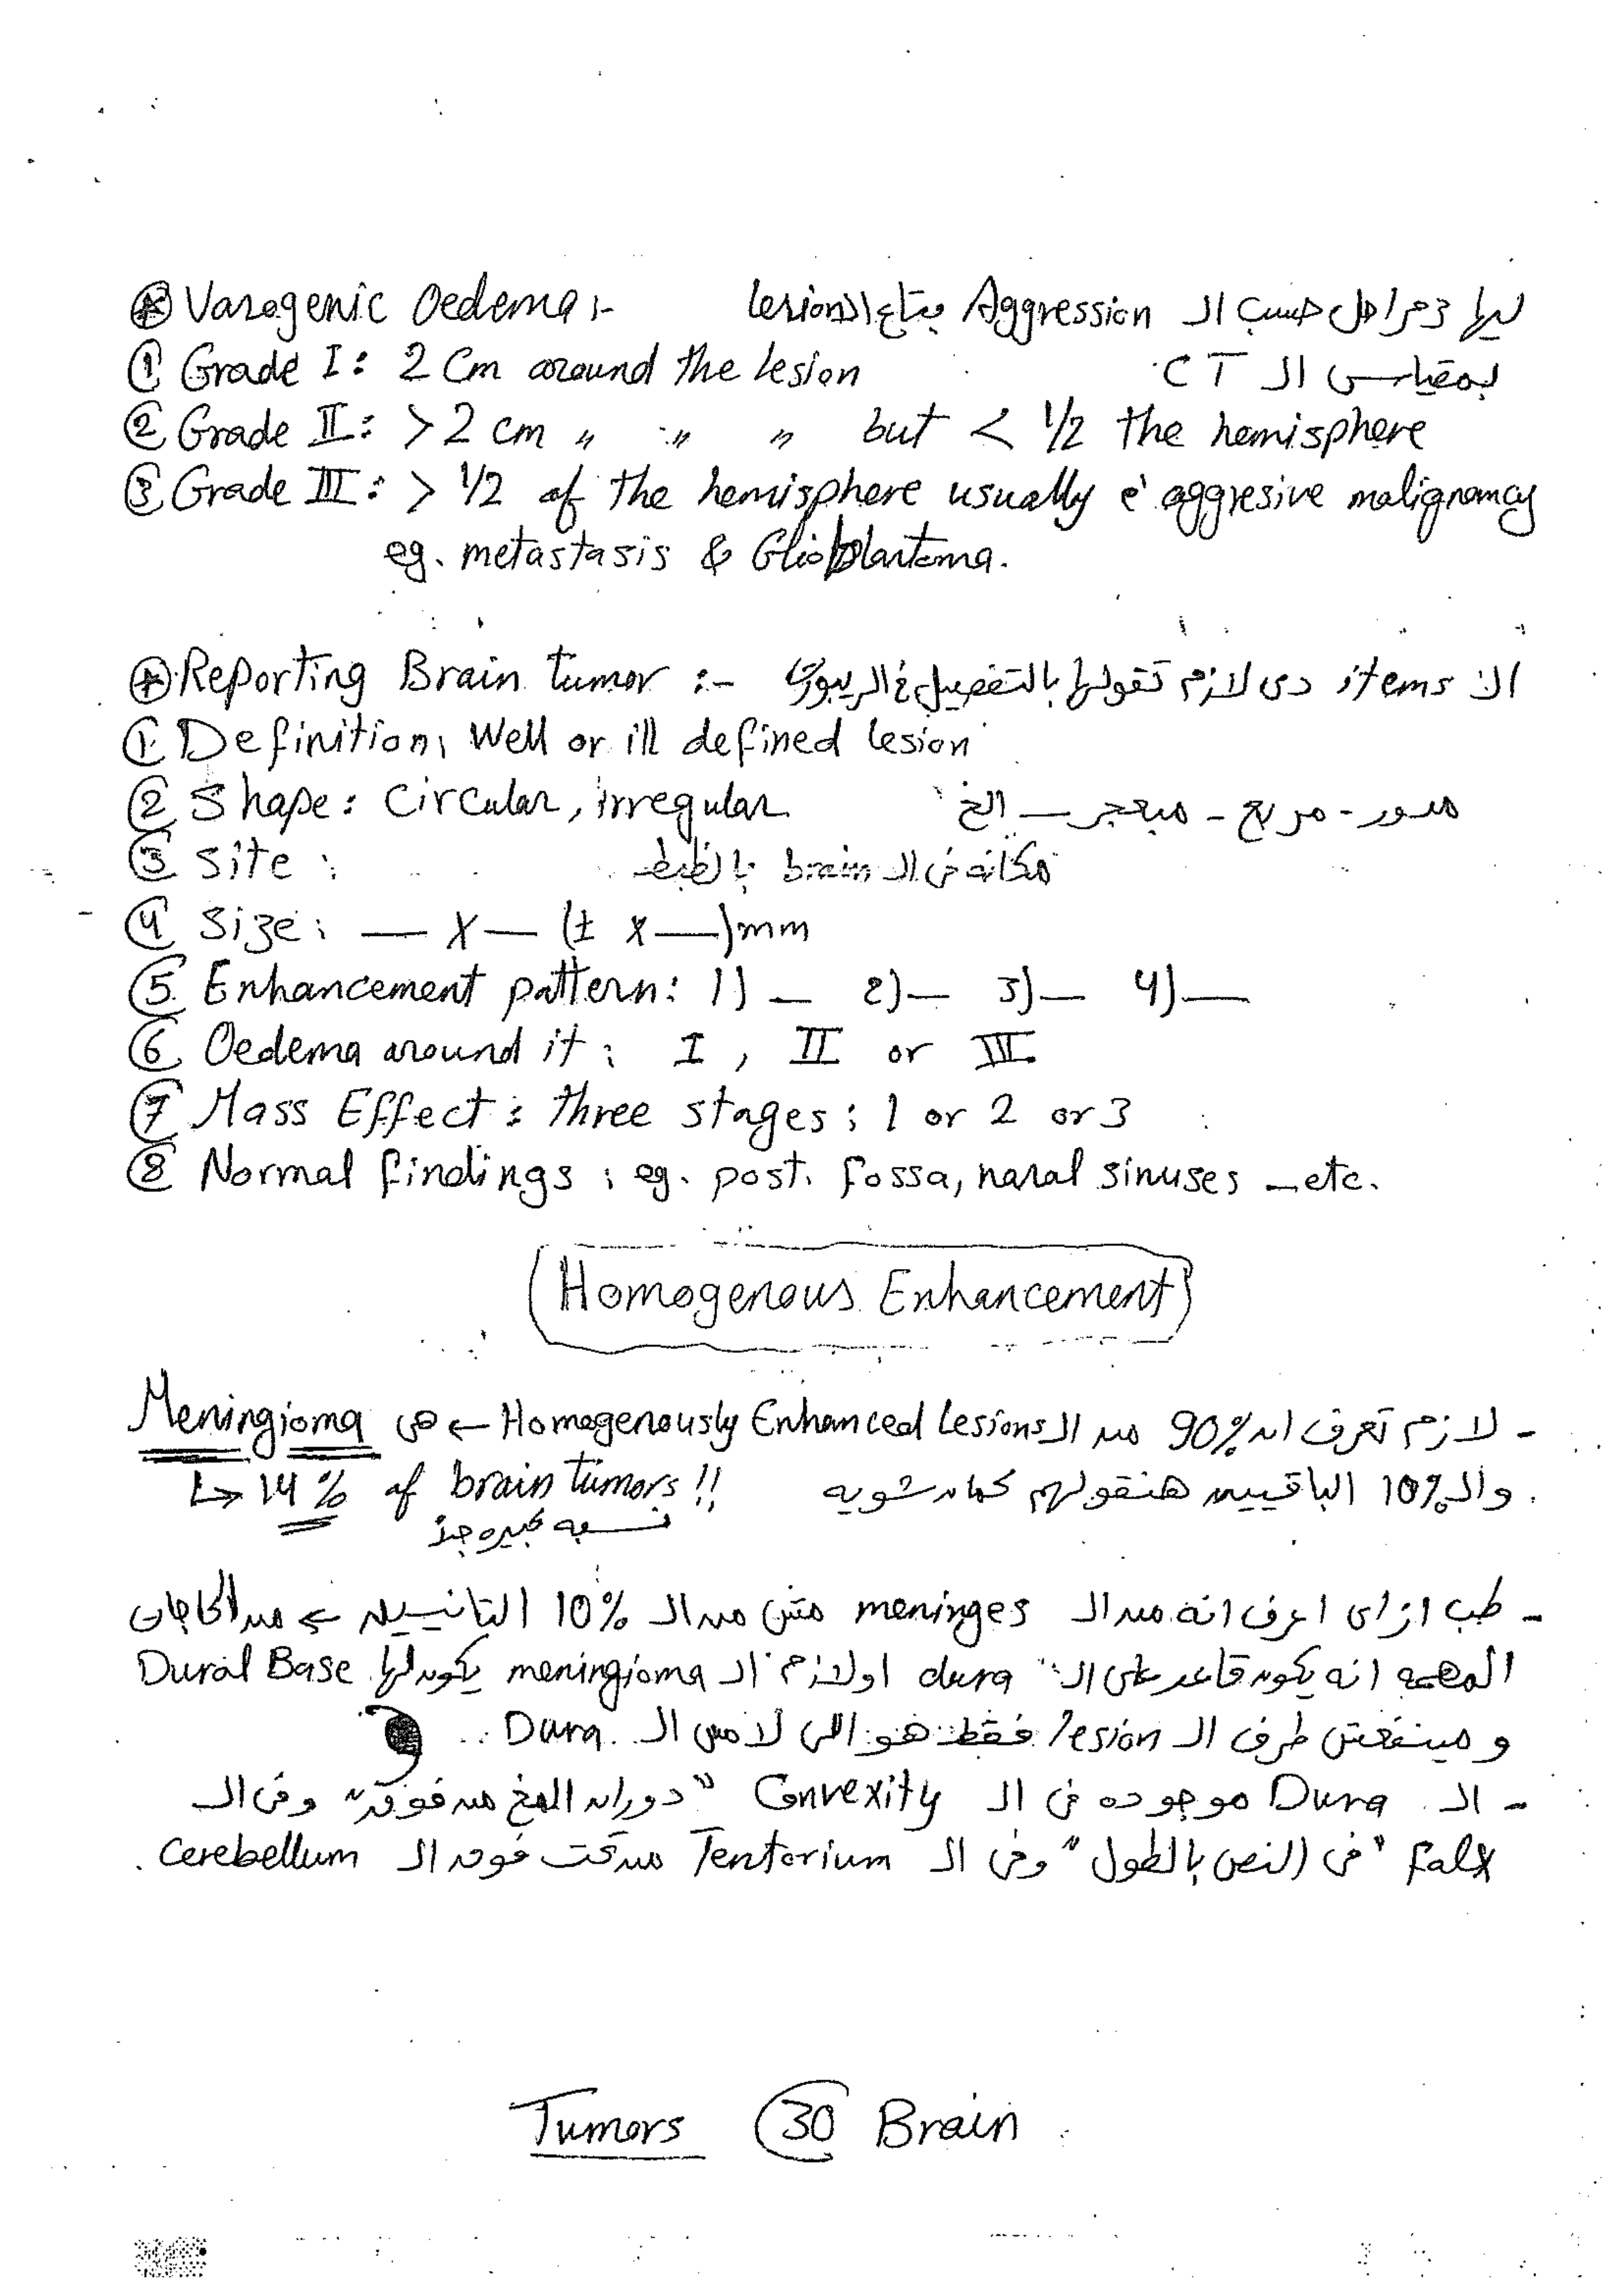 ⊛ Vasogenic Oedema :- ليها 3 مراحل حسب الـ Aggression بتاع الـ lesion
① Grade I : 2 Cm around the lesion بمقياس الـ CT
② Grade II : > 2 cm " " " but < 1/2 the hemisphere
③ Grade III : > 1/2 of the hemisphere usually c̄ aggresive malignancy
eg. metastasis & Glioblastoma.
⊛ Reporting Brain tumor :- الـ items دى لازم تقولها بالتفصيل فى الريبورت
① Definition, Well or ill defined lesion
② Shape : Circular, irregular مدور - مربع - مبعجر — الخ
③ Site : مكانه فى الـ brain بالظبط
④ Size : — X — (± x —) mm
⑤ Enhancement pattern : 1) — 2) — 3) — 4) —
⑥ Oedema around it : I , II or III
⑦ Mass Effect : three stages : 1 or 2 or 3
⑧ Normal findings : eg. post. fossa, nasal sinuses — etc.
Homogenous Enhancement
- لازم تعرف ان 90% من الـ Homogenously Enhanced Lesions ← هى Meningioma
والـ 10% الباقيين هنقولهم كمان شويه . ↳ 14% of brain tumors !!
نسبه كبيره جداً
- طب ازاى اعرف انه من الـ meninges مش من الـ 10% التانيين ← من الحاجات
المهمه انه يكون قاعد على الـ dura اولازم الـ meningioma يكون لها Dural Base
و مينفعش طرف الـ lesion فقط هو اللى لامس الـ Dura.
- الـ Dura موجوده فى الـ Convexity "دوران المخ من فوق" وفى الـ
falx "فى النص بالطول" وفى الـ Tentorium من تحت فوق الـ Cerebellum .
Tumors 30 Brain